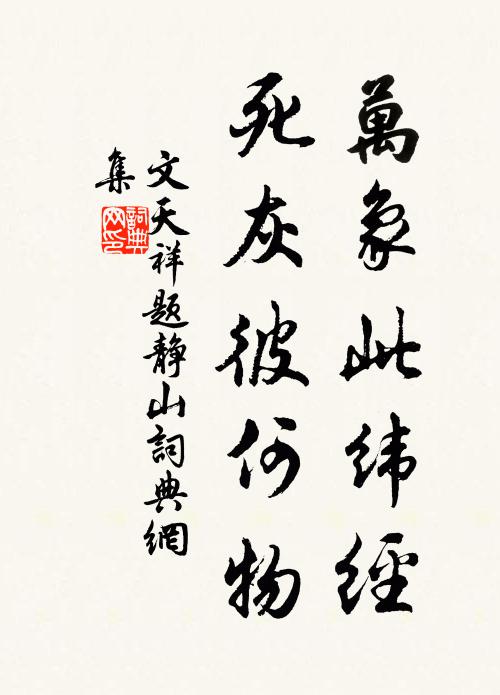 萬象此緯經
死灰彼何物
文天祥題静山詞典網
集
詞典
网印